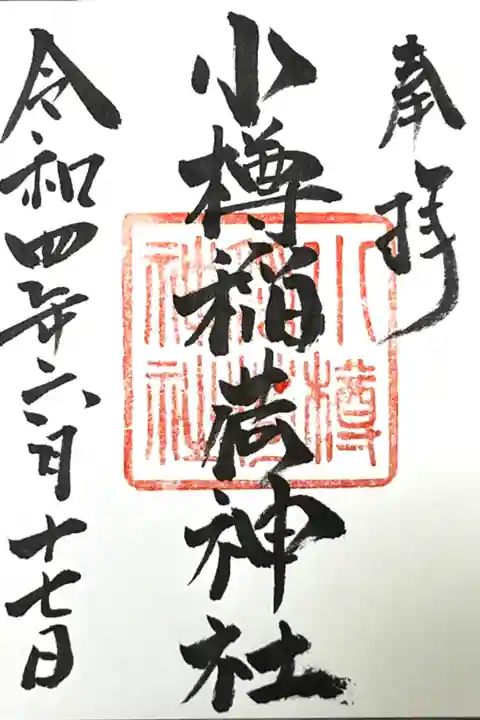 奉拝
小樽稲荷神社
小樽稲荷神社
令和四年六月十七日